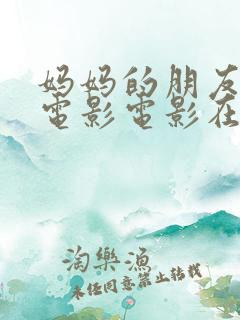 妈妈的朋友
電影電影在
淘樂漁
未经同意禁止转载